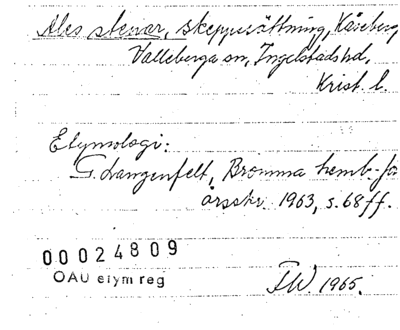 Ales stenar, skeppssättning, Kåseberg
Valleberga sn, Ingelstads hd,
Krist. l.
Etymologi:
G. Langenfelt, Bromma hemb.-fö
årsskr. 1963, s. 68 ff.
00024809
OAU etym reg
FW 1965.